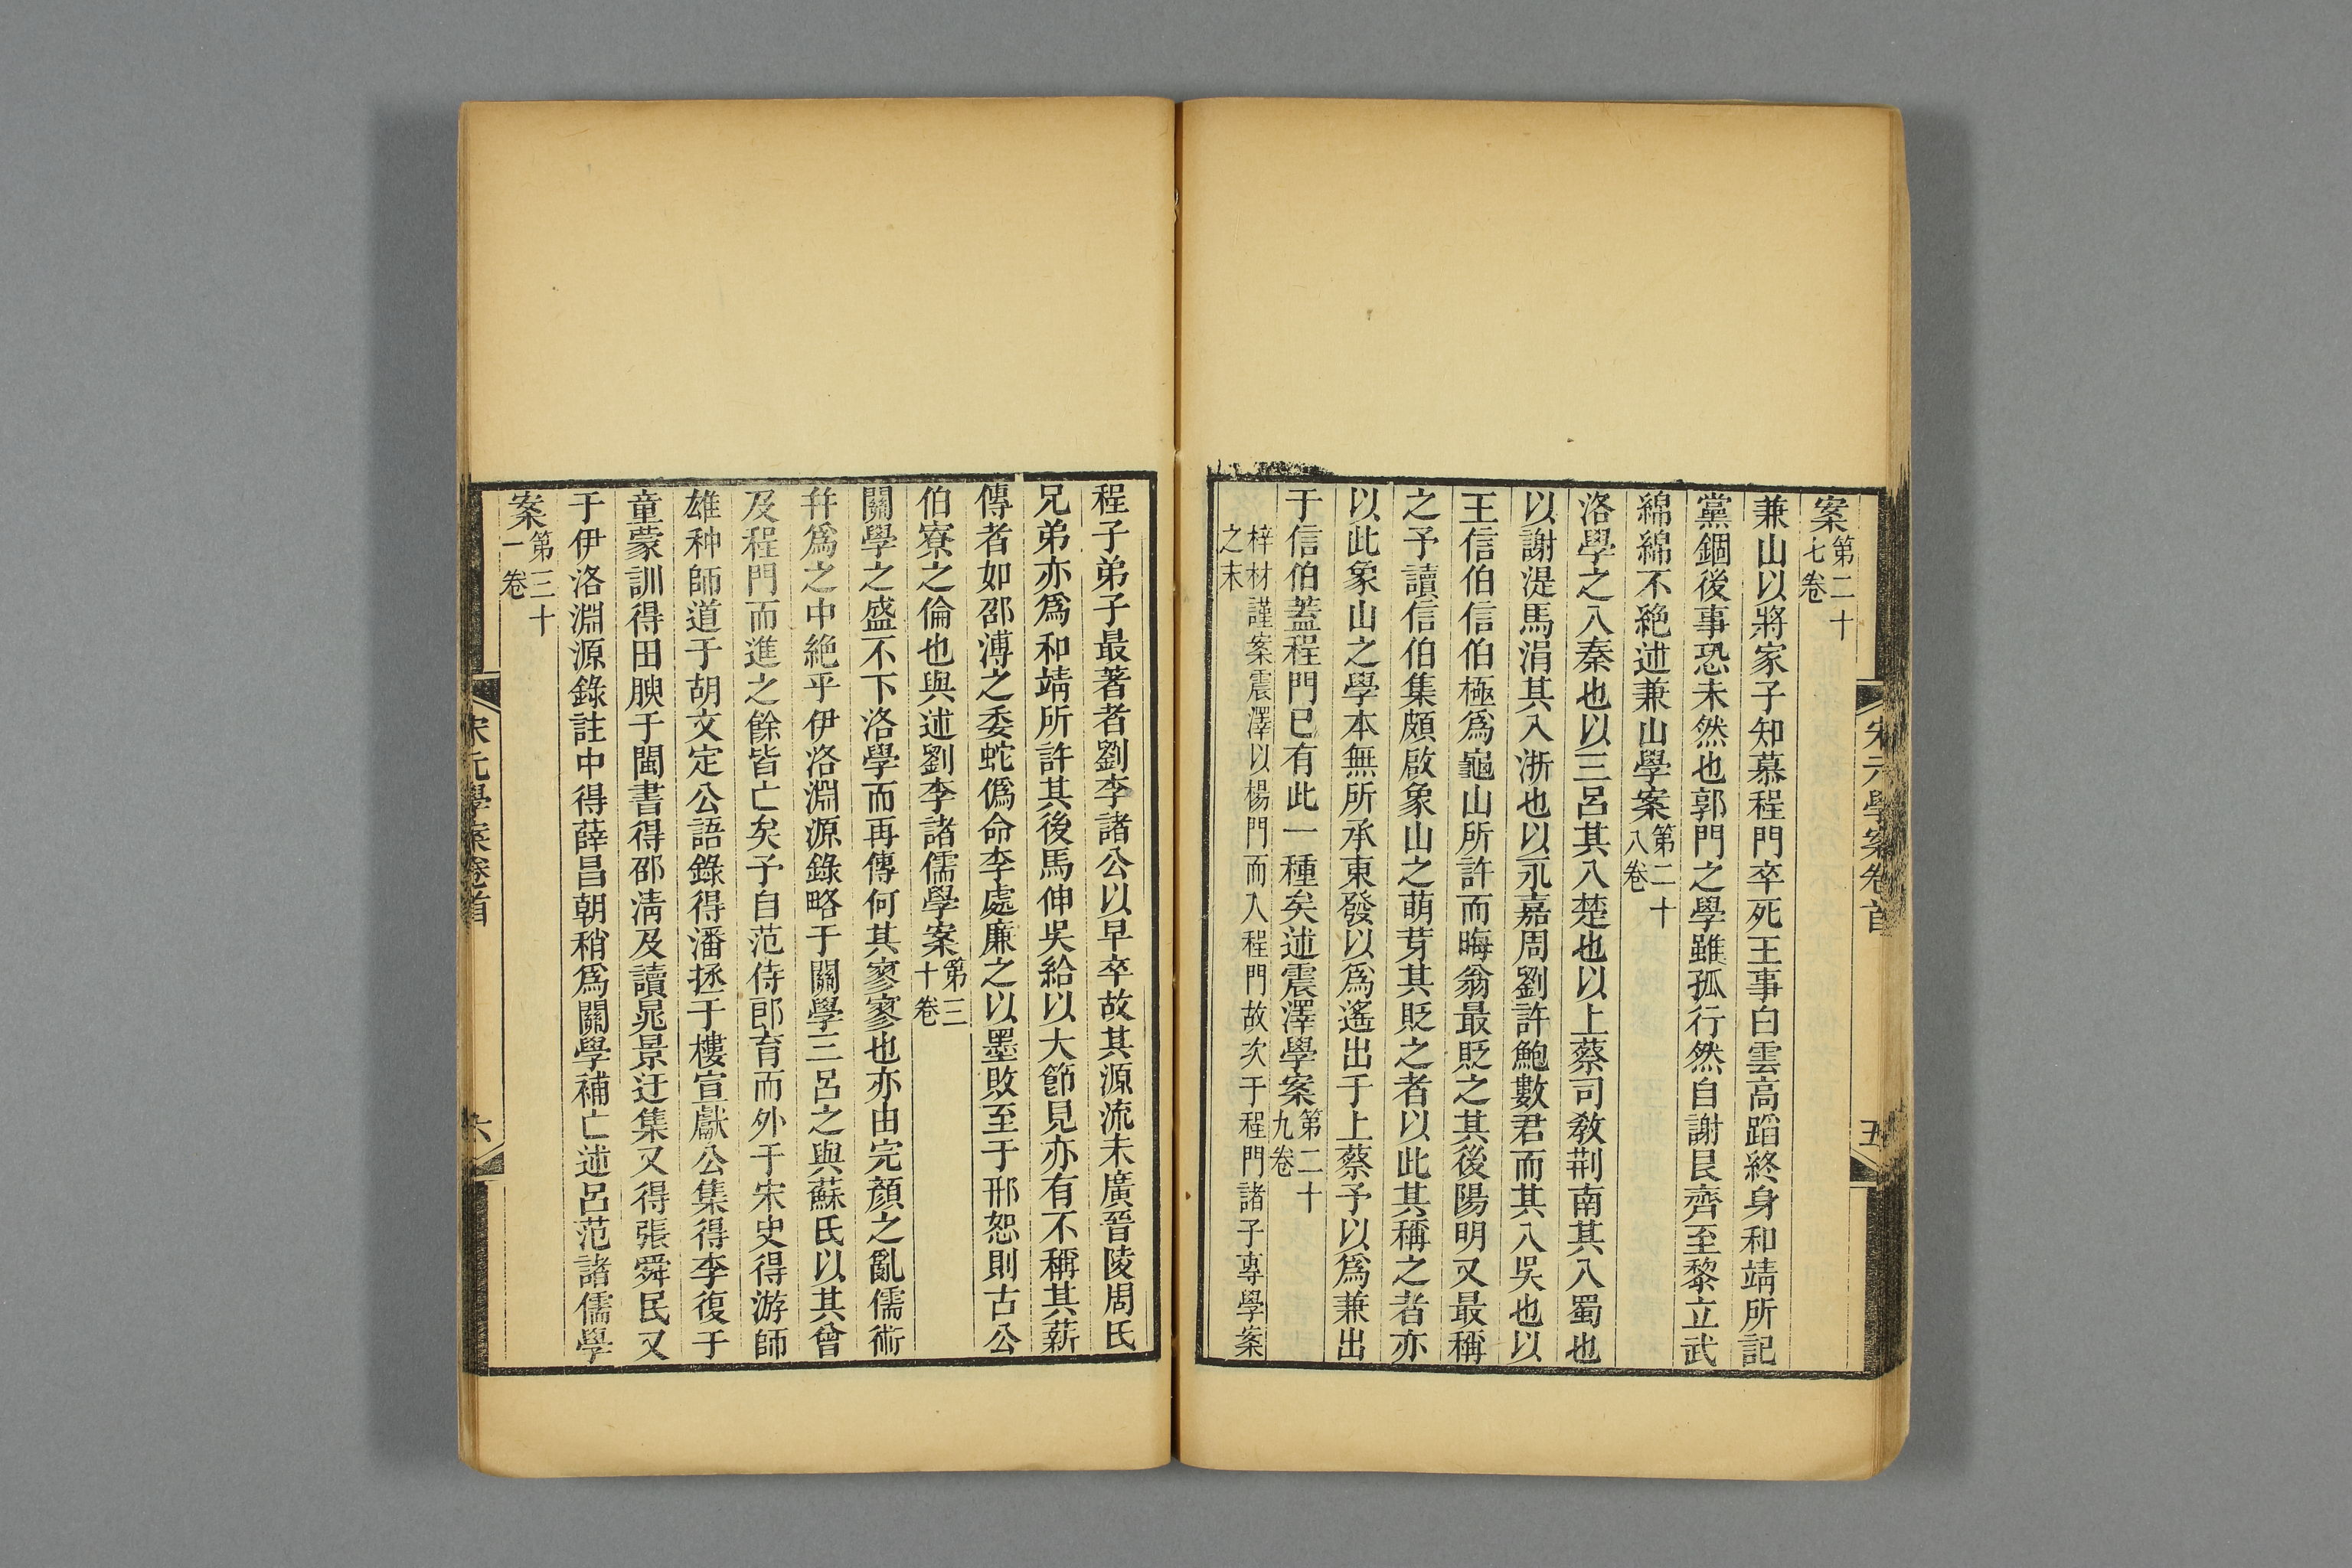 宋元學案卷首
五
案第二十七卷
兼山以將家子知慕程門卒死王事白雲高蹈終身和靖所記
黨錮後事恐未然也郭門之學雖孤行然自謝艮齊至黎立武
綿綿不絶述兼山學案第二十八卷
洛學之入秦也以三呂其入楚也以上蔡司敎荆南其入蜀也
以謝湜馬涓其入浙也以永嘉周劉許鮑數君而其入吳也以
王信伯信伯極爲龜山所許而晦翁最貶之其後陽明又最稱
之予讀信伯集頗啟象山之萌芽其貶之者以此其稱之者亦
以此象山之學本無所承東發以爲遙出于上蔡予以爲兼出
于信伯蓋程門已有此一種矣述震澤學案第二十九卷
梓材謹案震澤以楊門而入程門故次于程門諸子專學案
之末
程子弟子最著者劉李諸公以早卒故其源流未廣晉陵周氏
兄弟亦爲和靖所許其後馬伸吳給以大節見亦有不稱其薪
傳者如邵溥之委蛇僞命李處廉之以墨敗至于邢恕則古公
伯寮之倫也與述劉李諸儒學案第三十卷
關學之盛不下洛學而再傳何其寥寥也亦由完顏之亂儒術
幷爲之中絶乎伊洛淵源錄略于關學三呂之與蘇氏以其曾
及程門而進之餘皆亡矣予自范侍郎育而外于宋史得游師
雄种師道于胡文定公語錄得潘拯于樓宣獻公集得李復于
童蒙訓得田腴于閩書得邵淸及讀晁景迂集又得張舜民又
于伊洛淵源錄註中得薛昌朝稍爲關學補亡述呂范諸儒學
案第三十一卷
宋元學案卷首
六